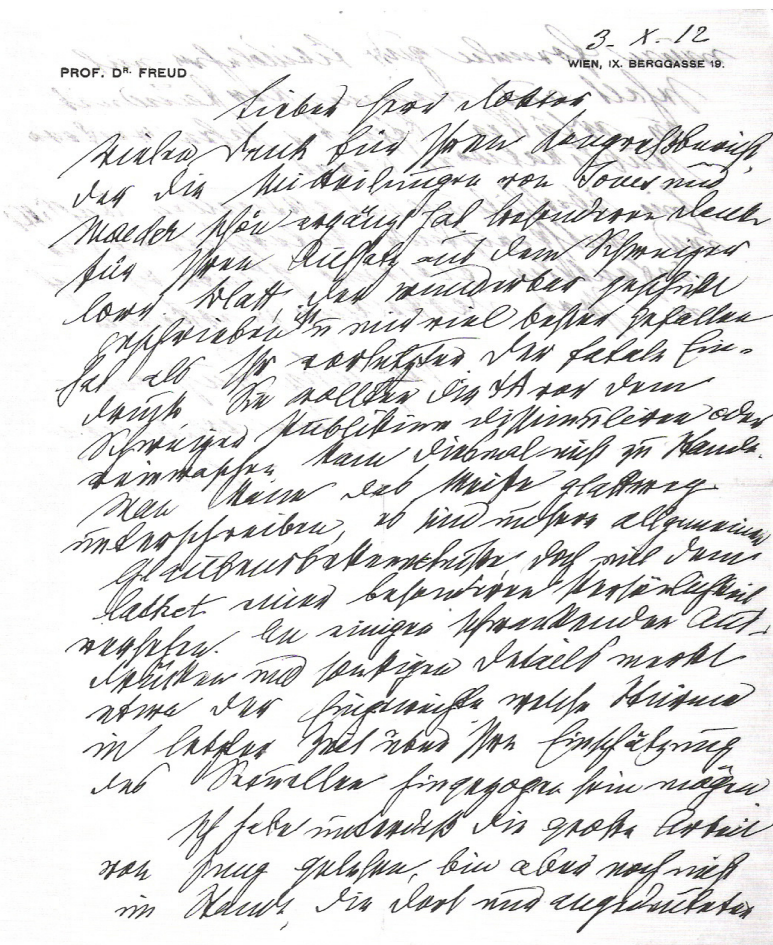 3. X. 12
PROF. DR. FREUD
WIEN, IX. BERGGASSE 19.
Lieber Herr Doktor
Vielen Dank für Ihren Kongreßbericht,
der die Mitteilungen von Jones und
Maeder schön ergänzt hat besonderen Dank
für Ihren Aufsatz aus dem Schweizer
Blatt, der wunderbar geschickt
geschrieben ist u mir viel besser gefallen
hat als Ihr vorletzter Der fatale Ein-
druck Sie wollten die ΨA vor dem
Schweizer Publikum dissimulieren oder
reinwaschen kam diesmal nicht zu Stande.
Man kann das Meiste glattweg
unterschreiben, es sind unsere allgemeinen
Glaubensbekenntnisse, doch mit dem
Cachet einer besonderen Persönlichkeit
versehen. An einigen schwankenden Aus-
drücken und sonstigen Details merkt
etwa der Eingeweihte welche Stürme
in letzter Zeit über Ihre Einschätzung
des Sexuellen hingezogen sein mögen
Ich habe unterdeß die große Arbeit
von Jung gelesen, bin aber noch nicht
im Stande, die dort nur angedeuteten